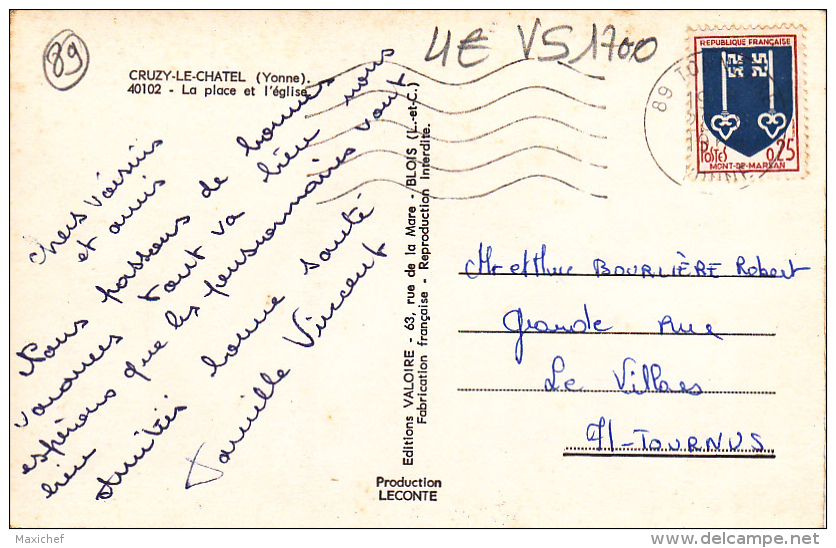 89
4€ VS1700
CRUZY-LE-CHATEL (Yonne).
40102 - La place et l'église
REPUBLIQUE FRANÇAISE
POSTES 0,25
MONT-DE-MARSAN
89 TO
chers Voisins
et amis
Nous passons de bonnes
vacances tout va bien nous
espérons que les pensionnaires vont
bien
Amitiés bonne santé
Famille Vincent
Editions VALOIRE - 63, rue de la Mare - BLOIS (L.-et-C.)
Fabrication française - Reproduction Interdite.
Production
LECONTE
Mr et Mme BOURLIÈRE Robert
Grande Rue
Le Villars
71-TOURNUS
Maxichef
delcampe.net